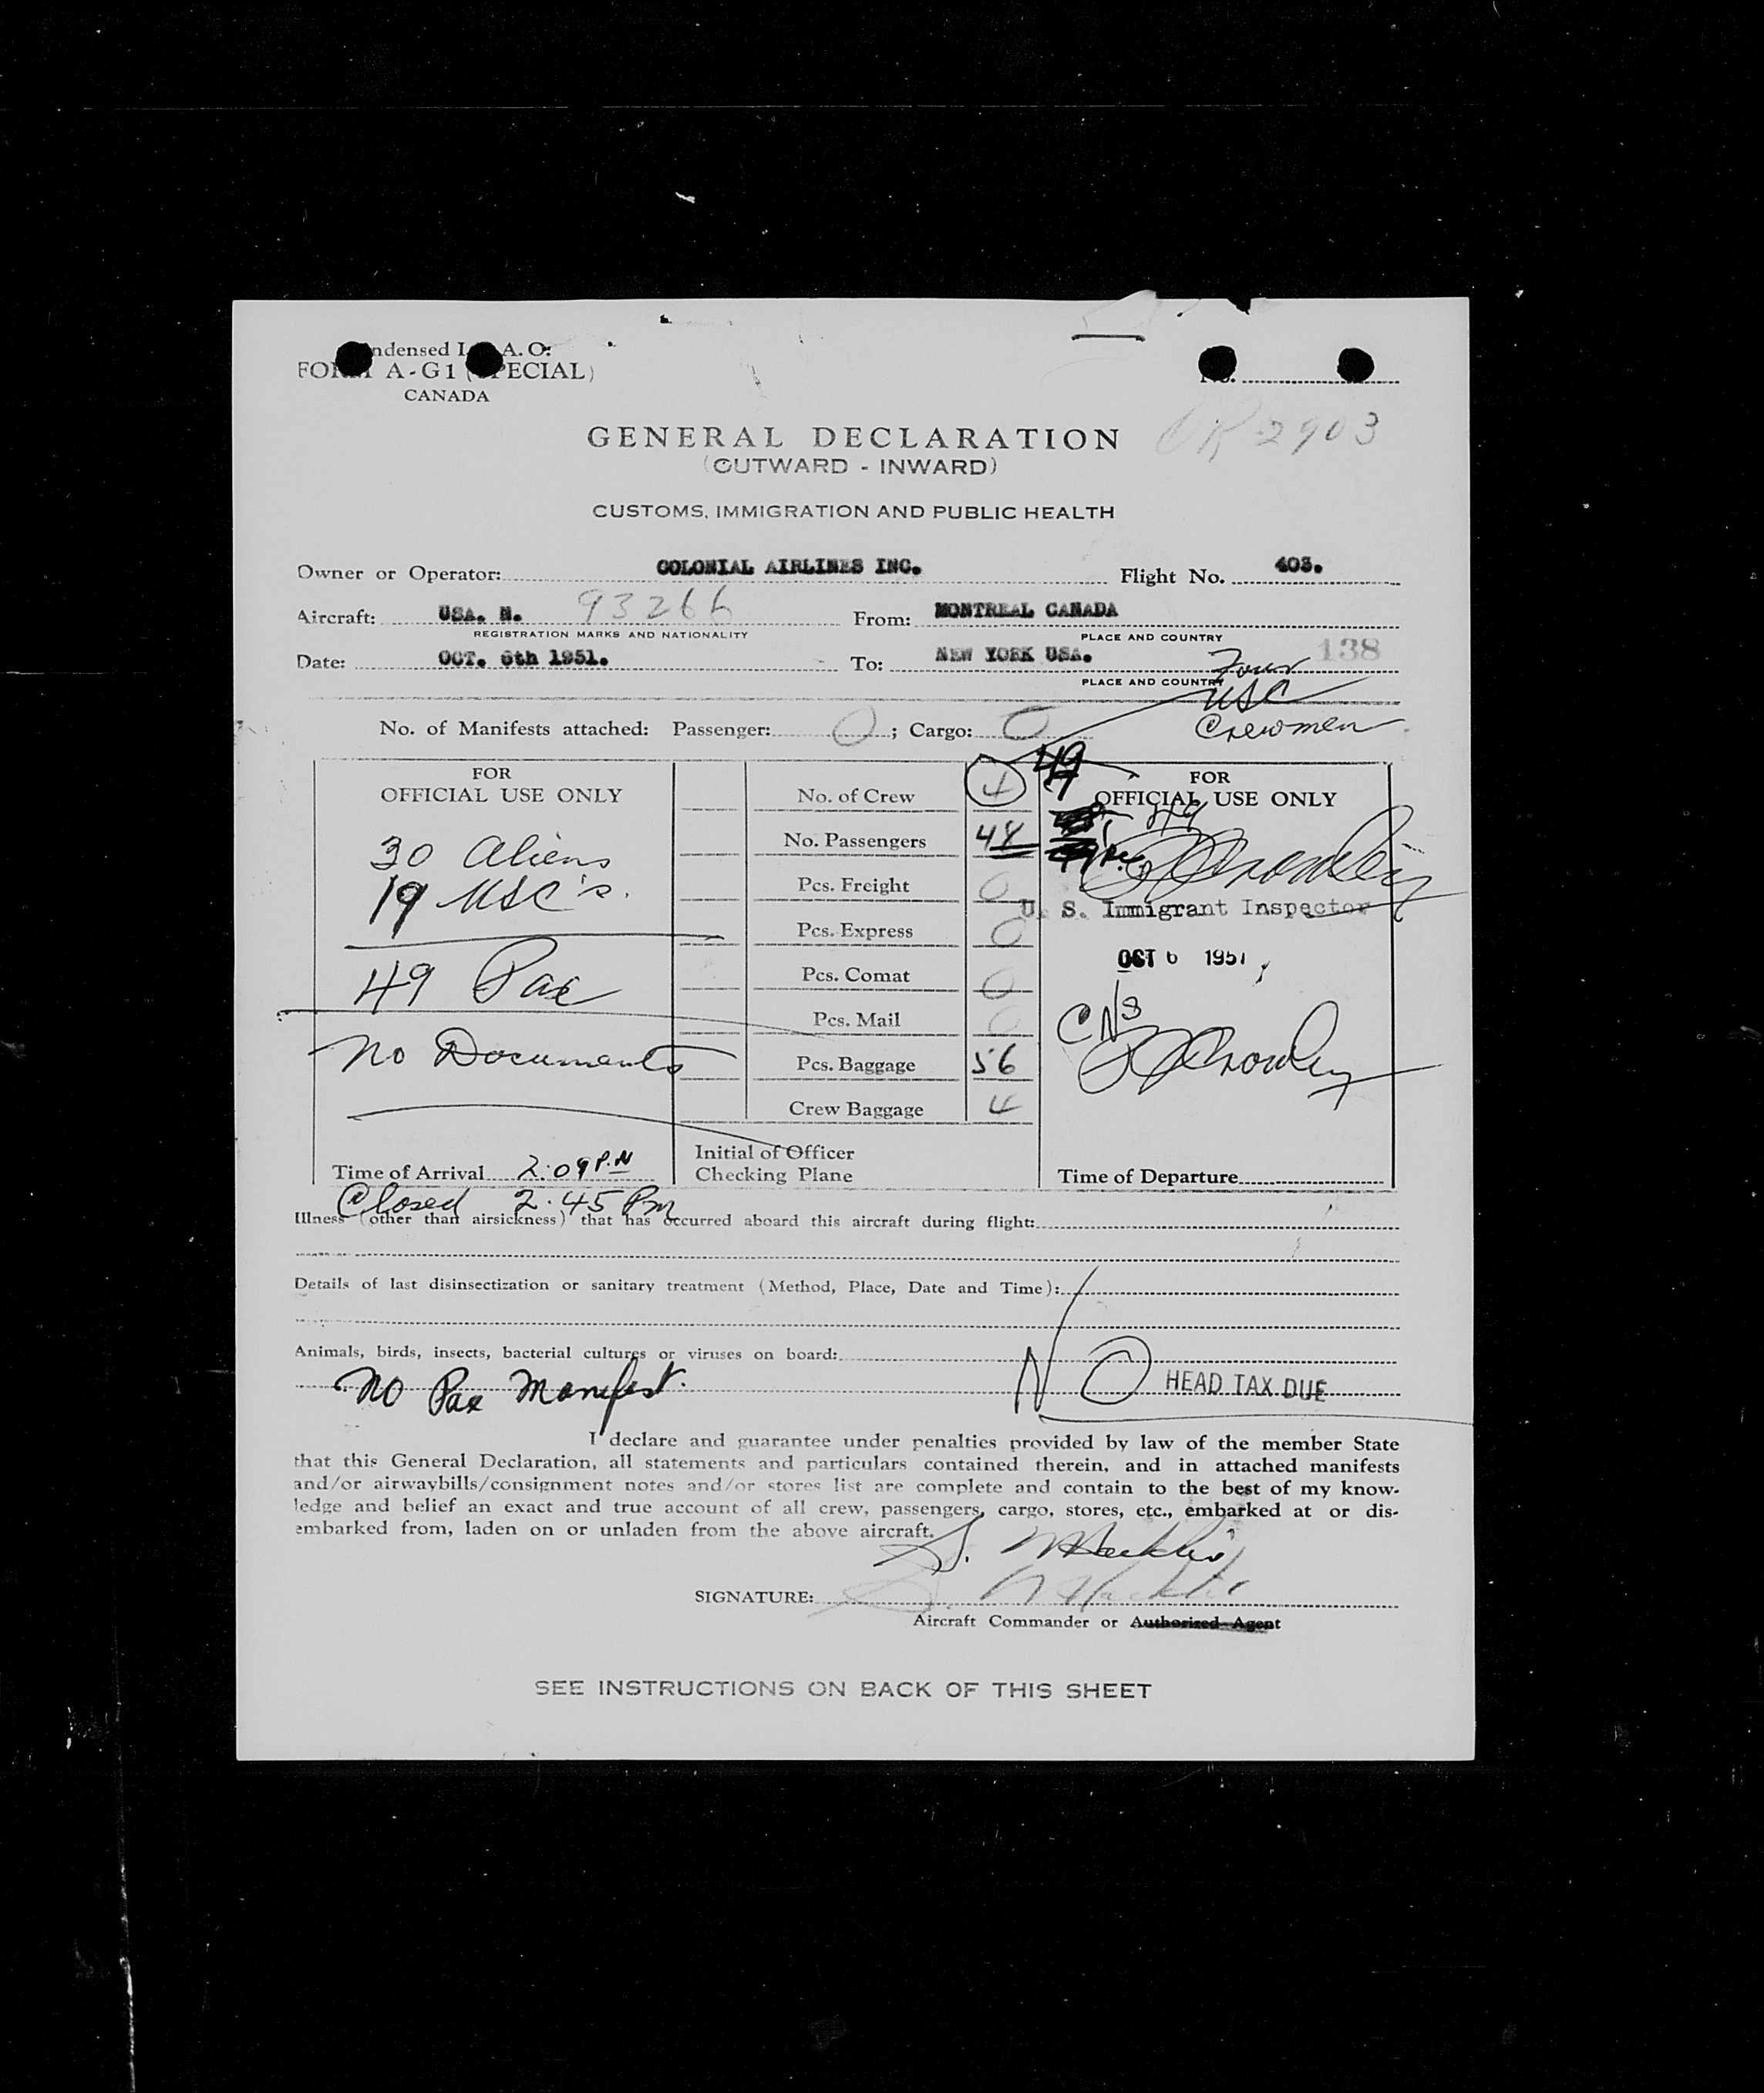 ndensed I A. O:
FORM A-G1 (SPECIAL)
CANADA
No.
OK 2903
GENERAL DECLARATION
(OUTWARD - INWARD)
CUSTOMS, IMMIGRATION AND PUBLIC HEALTH
Owner or Operator: COLONIAL AIRLINES INC. Flight No. 403.
Aircraft: USA. N. 93266 From: MONTREAL CANADA
REGISTRATION MARKS AND NATIONALITY PLACE AND COUNTRY
138
Date: OCT. 6th 1951. To: NEW YORK USA.
PLACE AND COUNTRY
Four
USC
Crewmen
No. of Manifests attached: Passenger: 0; Cargo: 0
FOR
OFFICIAL USE ONLY
30 Aliens
19 USC's.
49 Pax
No Documents
Time of Arrival 2:09 P.M
Closed 2:45 Pm
No. of Crew 4
No. Passengers 48
Pcs. Freight 0
Pcs. Express 0
Pcs. Comat 0
Pcs. Mail 0
Pcs. Baggage 56
Crew Baggage 4
Initial of Officer
Checking Plane
49
FOR
OFFICIAL USE ONLY
49
Crowley
U. S. Immigrant Inspector
OCT 6 1951
Crowley
Time of Departure
Illness (other than airsickness) that has occurred aboard this aircraft during flight:
Details of last disinsectization or sanitary treatment (Method, Place, Date and Time):
Animals, birds, insects, bacterial cultures or viruses on board:
No Pax Manifest.
NO HEAD TAX DUE
I declare and guarantee under penalties provided by law of the member State
that this General Declaration, all statements and particulars contained therein, and in attached manifests
and/or airwaybills/consignment notes and/or stores list are complete and contain to the best of my know-
ledge and belief an exact and true account of all crew, passengers, cargo, stores, etc., embarked at or dis-
embarked from, laden on or unladen from the above aircraft.
SIGNATURE:
Aircraft Commander or Authorized Agent
SEE INSTRUCTIONS ON BACK OF THIS SHEET